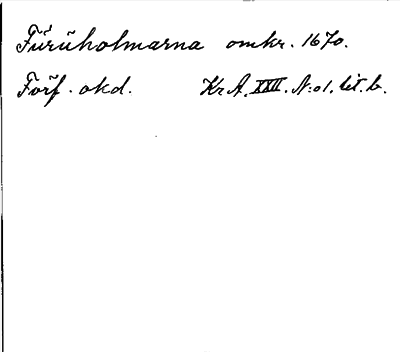 Furuholmarna omkr. 1670.
Förf. okd. Kr. A. XXII. N:o 1. lit. b.